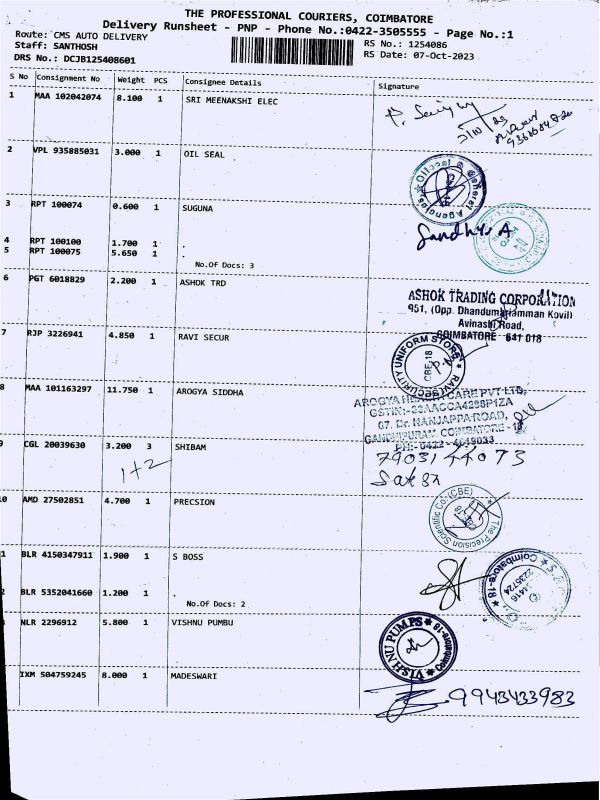 THE PROFESSIONAL COURIERS, COIMBATORE
Delivery Runsheet - PNP - Phone No.:0422-3505555 - Page No.:1
Route: CMS AUTO DELIVERY
RS No.: 1254086
Staff: SANTHOSH
RS Date: 07-Oct-2023
DRS No.: DCJB125408601
S No Consignment No Weight PCS Consignee Details Signature
1 MAA 102042074 8.100 1 SRI MEENAKSHI ELEC
2 VPL 935885031 3.000 1 OIL SEAL
Oilseal & General Agencies
3 RPT 100074 0.600 1 SUGUNA
Sandhya A
4 RPT 100100 1.700 1 .
5 RPT 100075 5.650 1 .
No.Of Docs: 3
6 PGT 6018829 2.200 1 ASHOK TRD
ASHOK TRADING CORPORATION
951, (Opp. Dhandumariamman Kovil)
Avinashi Road,
COIMBATORE - 641 018
7 RJP 3226941 4.850 1 RAVI SECUR
RAVI SECURITY UNIFORM STORES
CBE-18
8 MAA 101163297 11.750 1 AROGYA SIDDHA
AROGYA HEALTH CARE PVT LTD,
GSTIN:-33AACCA4288P1ZA
67, Dr. NANJAPPA ROAD,
GANDHIPURAM, COIMBATORE - 18
9 CGL 20039630 3.200 3 SHIBAM
1+2
10 AMD 27502851 4.700 1 PRECSION
The Precision Scientific Co (CBE)
1 BLR 4150347911 1.900 1 S BOSS
2 BLR 5352041660 1.200 1 .
No.Of Docs: 2
Coimbatore-18
NLR 2296912 5.800 1 VISHNU PUMBU
VISHNU PUMPS
Coimbatore-18
IXM 504759245 8.000 1 MADESWARI
9943433983